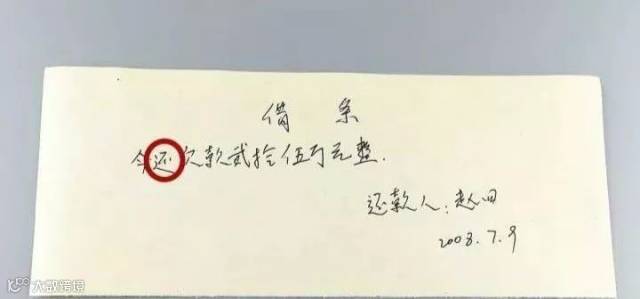 借条
今还欠款贰拾伍万元整.
还款人:赵四
2008.7.9
大数跨境